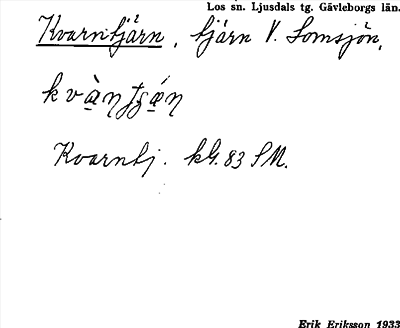 Los sn. Ljusdals tg. Gävleborgs län.
Kvarntjärn, tjärn V. Lomsjön,
Kvarntj. kbl. 83 SM.
Erik Eriksson 1933